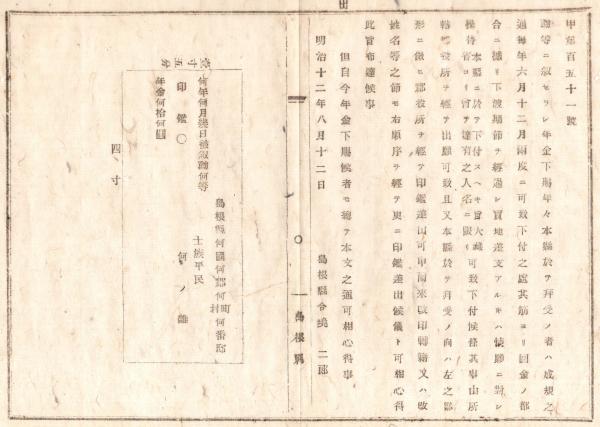 甲第百五十一號
勳等ニ叙セラレ年金下賜年々本縣於テ拜受ノ者ハ成規之
通毎年六月十二月兩度ニ可致下付之處其筋ヨリ回金ノ都
合ニ據リ下渡期節ヲ經過シ實地差支アルモハ情願ニ對シ
本縣ニ於テ下付スヘキ旨大藏
省ヨリ達有之人名ニ限リ可致下付候條其事由所
轄郡役所ヲ經テ出願可致且又本縣於テ拜受ノ向ハ左之雛
形ニ倣ヒ郡役所ヲ經テ印鑑差出可申爾來改印轉籍又ハ改
姓名等之節モ右順序ヲ經テ更ニ印鑑差出候儀ト可相心得
此旨布達候事
但自今年金下賜候者モ總テ本文之通可相心得事
明治十二年八月十二日
島根縣令境二郎
○
島根縣
島根縣何國何郡何町村何番邸
士族平民
何ノ誰
何年何月幾日被叙勳何等
印鑑○
年金何拾何圓
四寸
壹寸五分